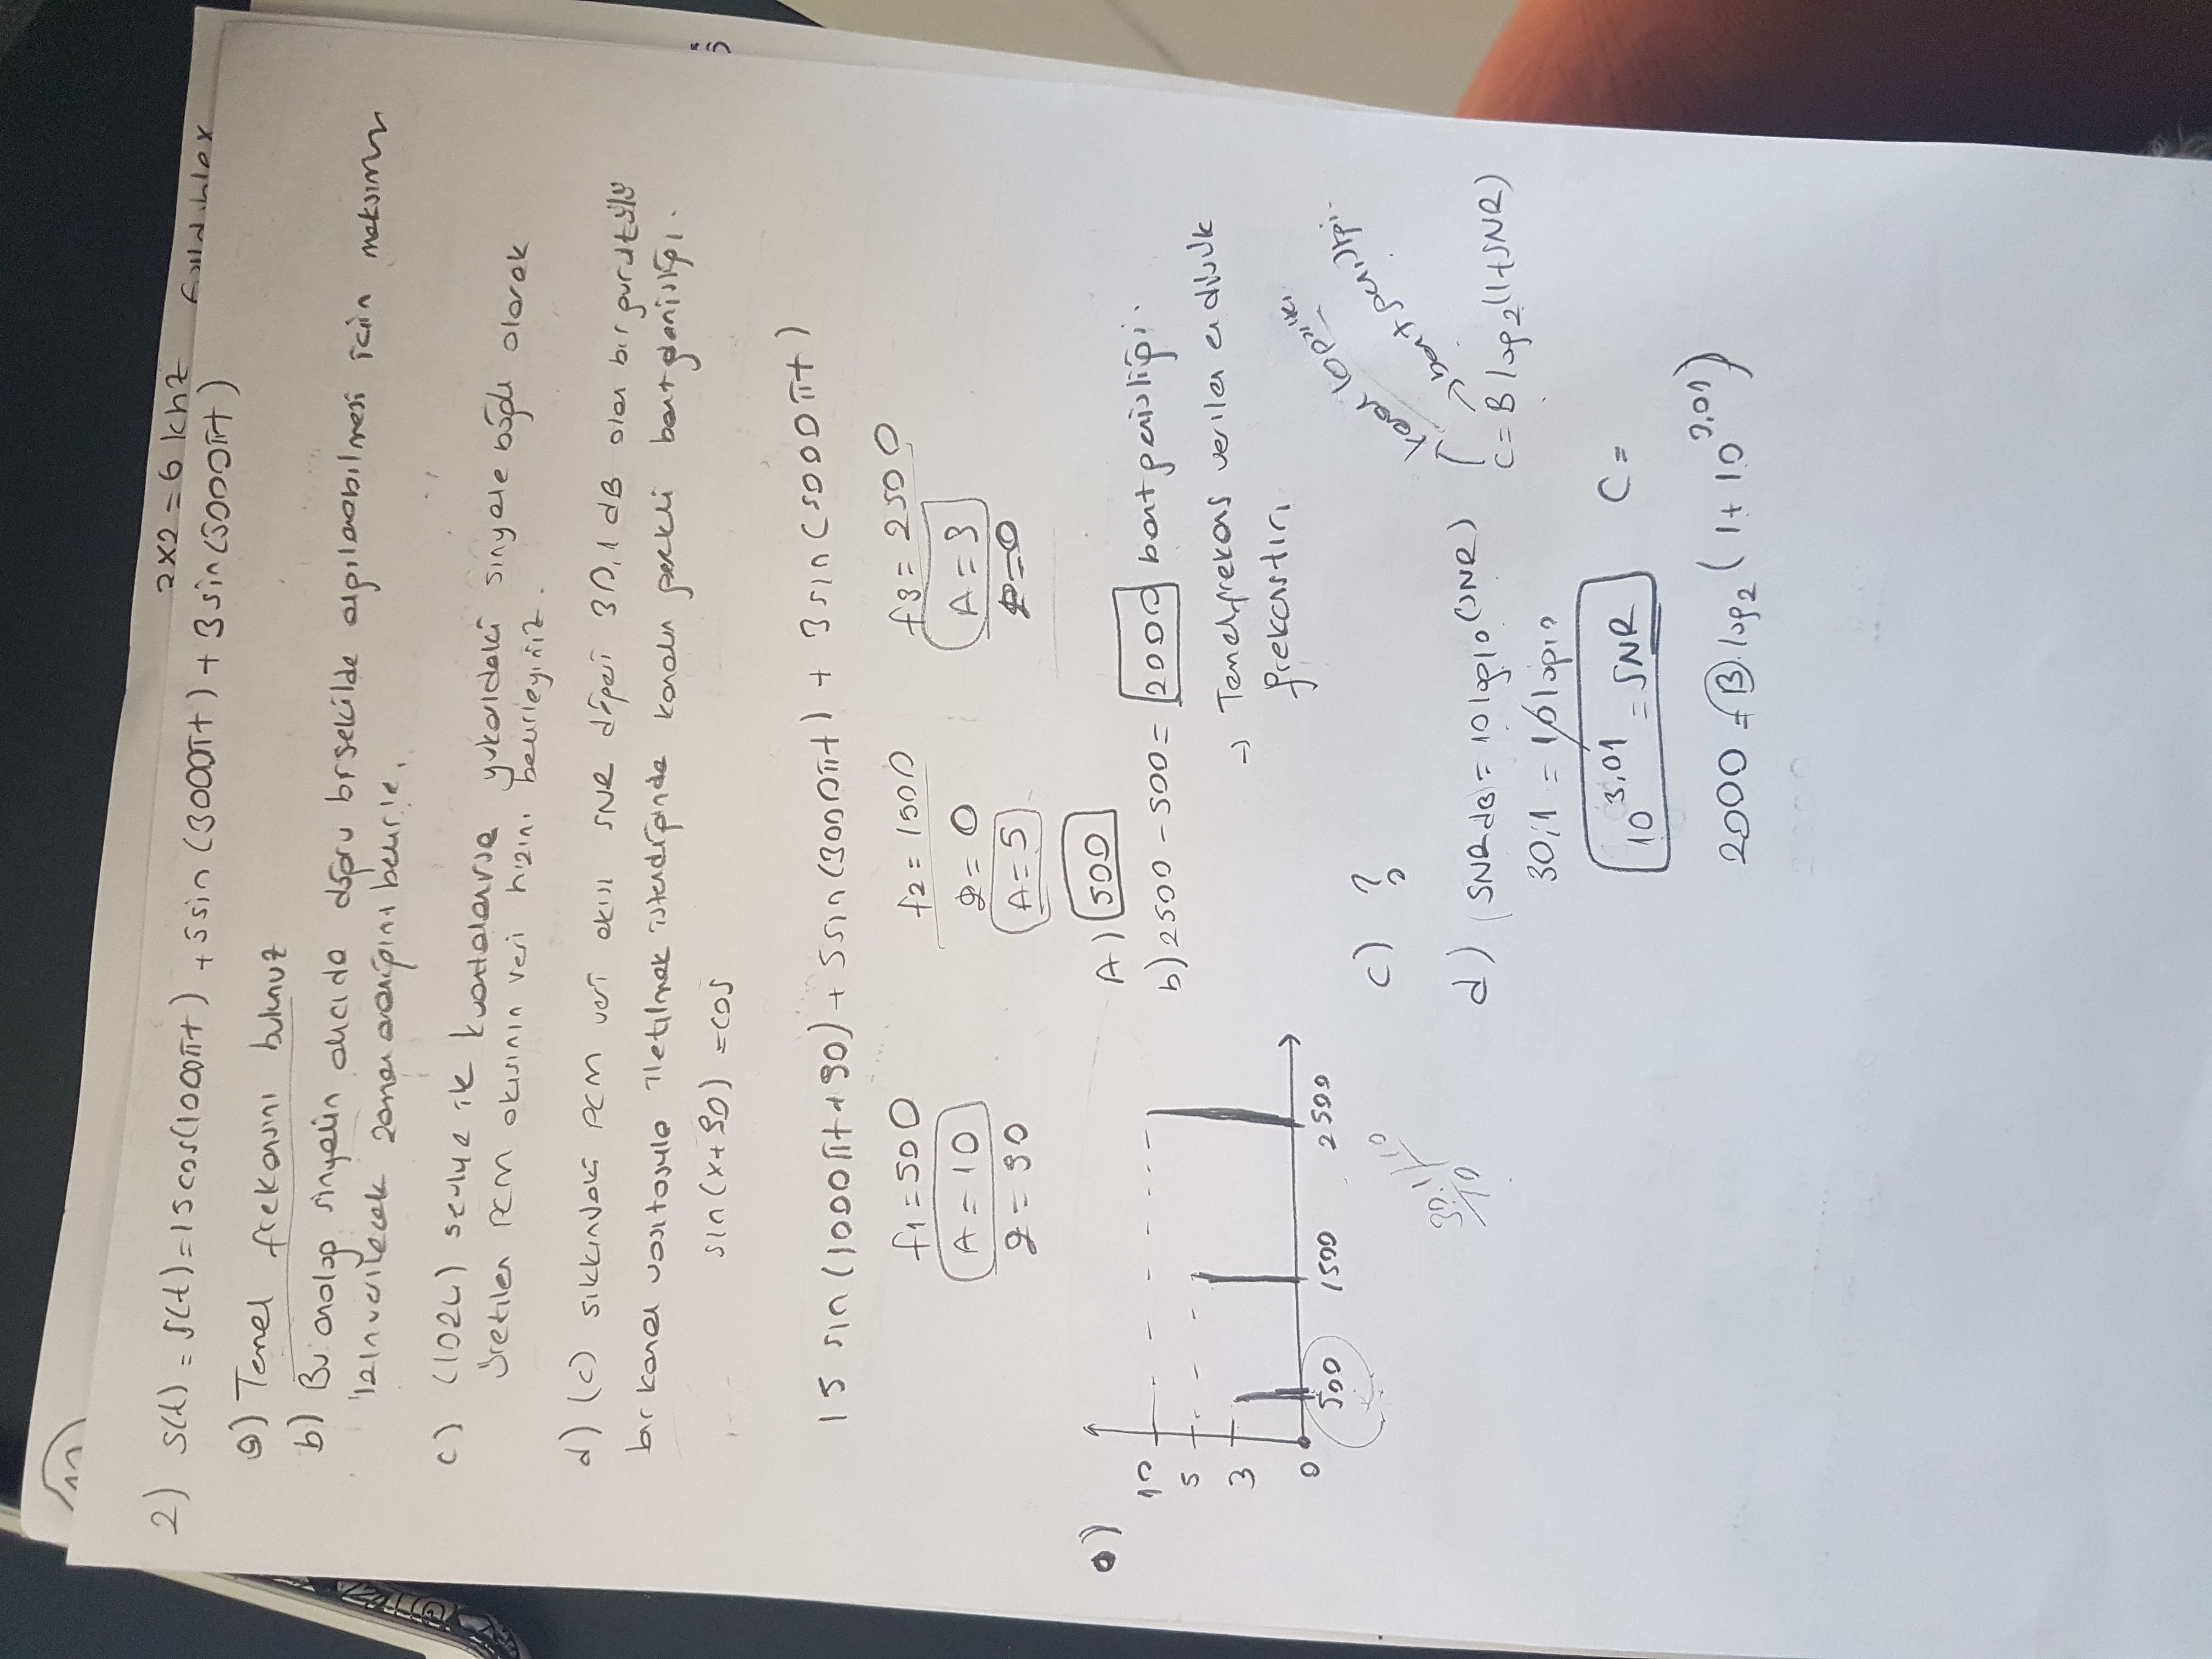 2x2 = 6 khz
2) s(t) = s(t) = 15 cos(1000πt) + 5 sin (3000πt) + 3 sin (5000πt)
a) Temel frekansını bulunuz
b) Bu analog sinyalin alıcıda doğru bir şekilde algılanabilmesi için maksimum
izin verilecek zaman aralığını belirle.
c) (1024) seviye ile kuantalanırsa yukarıdaki sinyale bağlı olarak
üretilen PCM akışının veri hızını belirleyiniz.
d) (c) şıkkındaki PCM veri akışı SNR değeri 30,1 dB olan bir gürültülü
bir kanal vasıtasıyla iletilmek istendiğinde kanalın gerekli bant genişliği.
sin(x+90) = cos
15 sin(1000πt + 90) + 5 sin(3000πt) + 3 sin(5000πt)
f1 = 500 f2 = 1500 f3 = 2500
A = 10 φ = 0 A = 3
φ = 90 A = 5 φ = 0
a)
10
5
3
0
500 1500 2500
30.1/10
10
A) 500
b) 2500 - 500 = 2000 bant genişliği.
→ Temel frekans verilen en düşük
frekanstır.
c) ?
kanal kapasitesi
bant genişliği.
d) SNR dB = 10 log10 (SNR) C = B log2 (1+SNR)
30,1 = 10 log10
10^3,01 = SNR C =
2000 = B log2 (1 + 10^3,01)